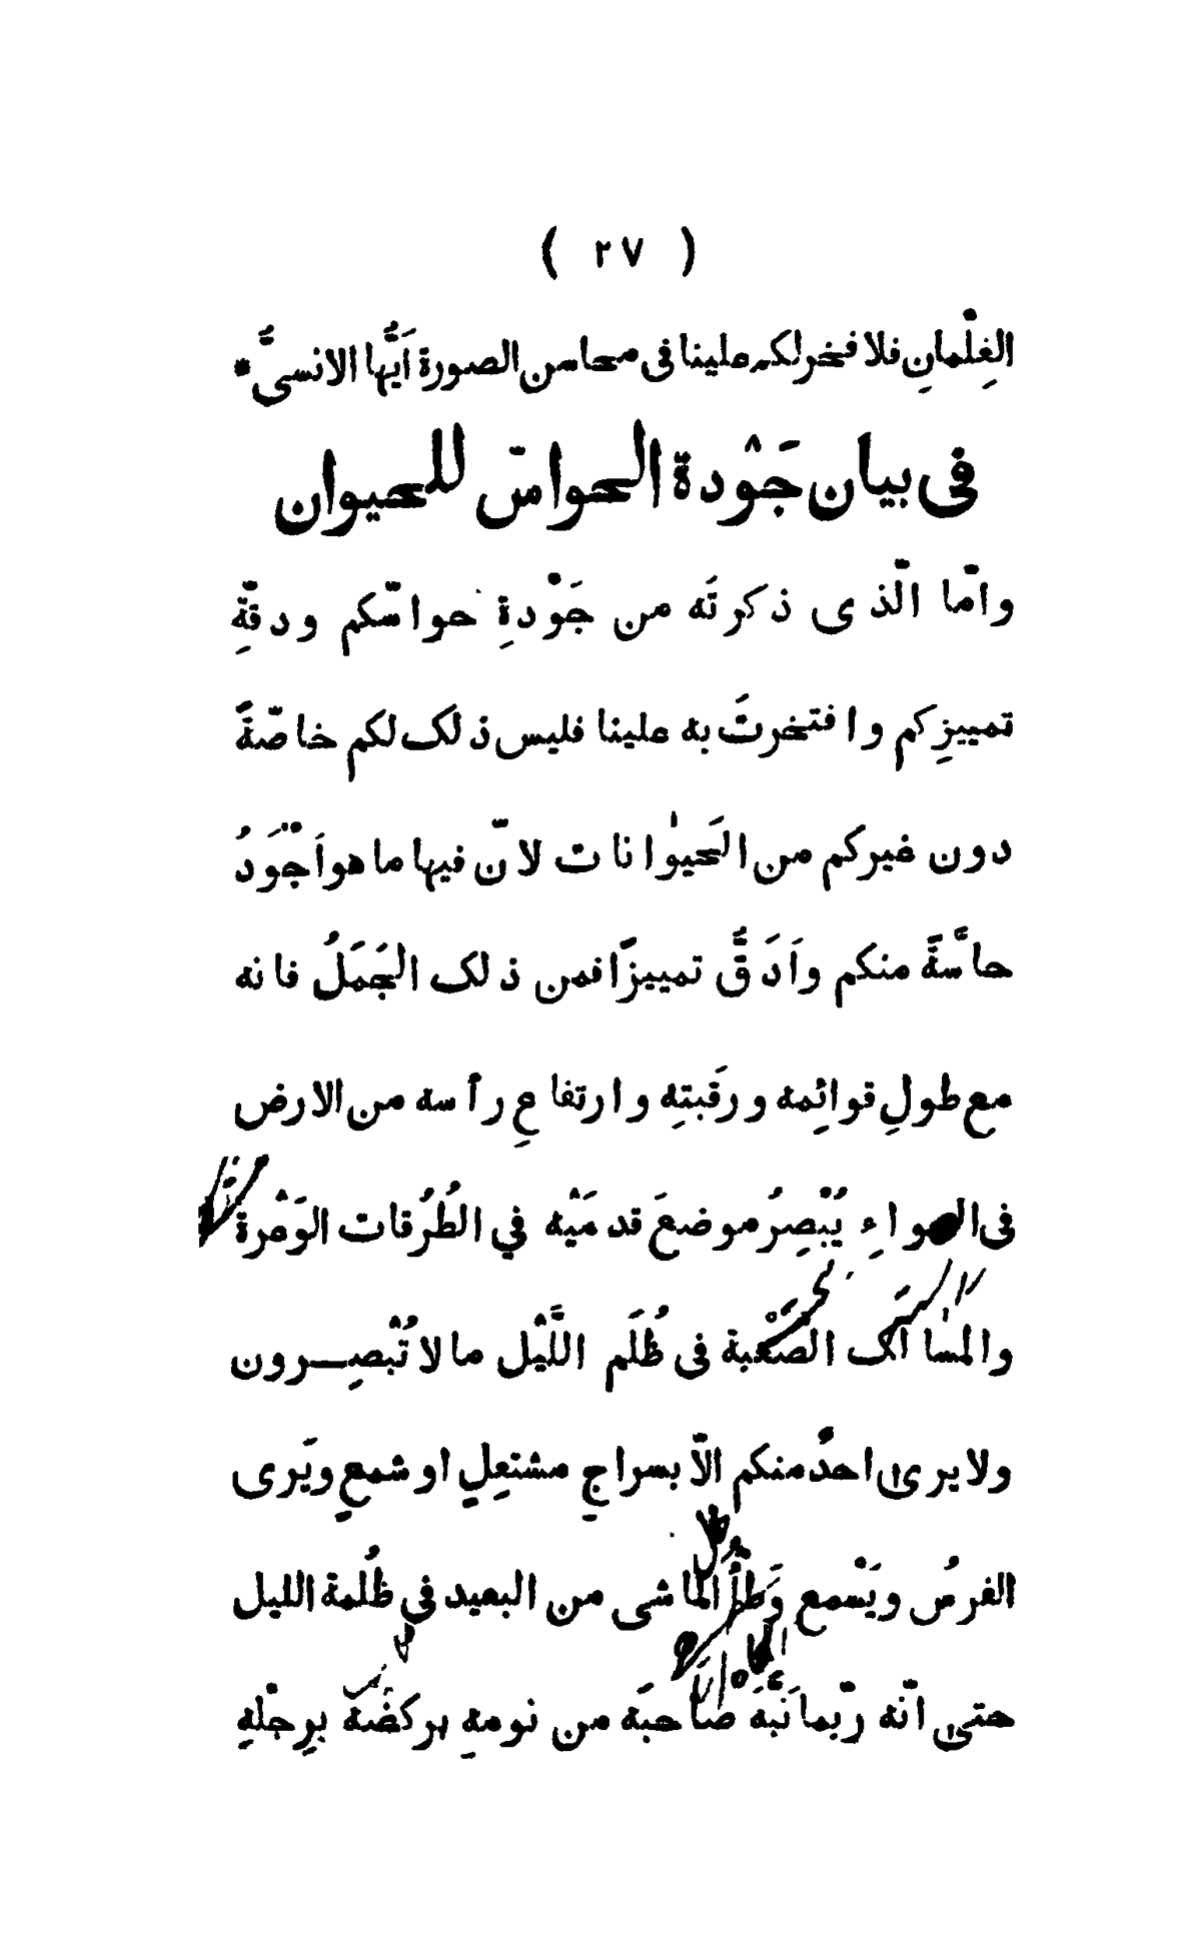 ( ٢٧ )
الغِلْمانِ فلا فخر لكم علينا فى محاسن الصورة اَيُّها الانسىُّ *
فى بيان جَوْدة الحواسّ للحيوان
وامّا الّذى ذكرتَه من جَوْدةِ حواسّكم ودقّةِ
تمييزِكم وافتخرتَ به علينا فليس ذلك لكم خاصّةً
دون غيركم من الحَيوٰانات لانّ فيها ما هو اَجْوَدُ
حاسَّةً منكم واَدَقَّ تمييزًا فمن ذلك الجَمَلُ فانه
مع طولِ قوائِمه ورقَبتِه وارتفاعِ رأسه من الارض
فى الهواءِ يُبْصِرُ موضعَ قدمَيْه في الطُرُقات الوَعْرة
والمسٰالك الصَعْبة فى ظُلَم اللَّيْل ما لا تُبْصِرون
ولا يرىٰ احدٌ منكم الّا بسراجٍ مشتعِلٍ او شمعٍ ويَرى
الفرسُ ويَسْمع وَطْأَ الماشى من البعيد في ظُلمة الليل
حتى انّه ربّما نَبَّهَ صاحبَه من نومهِ بركضَة برِجْلهِ